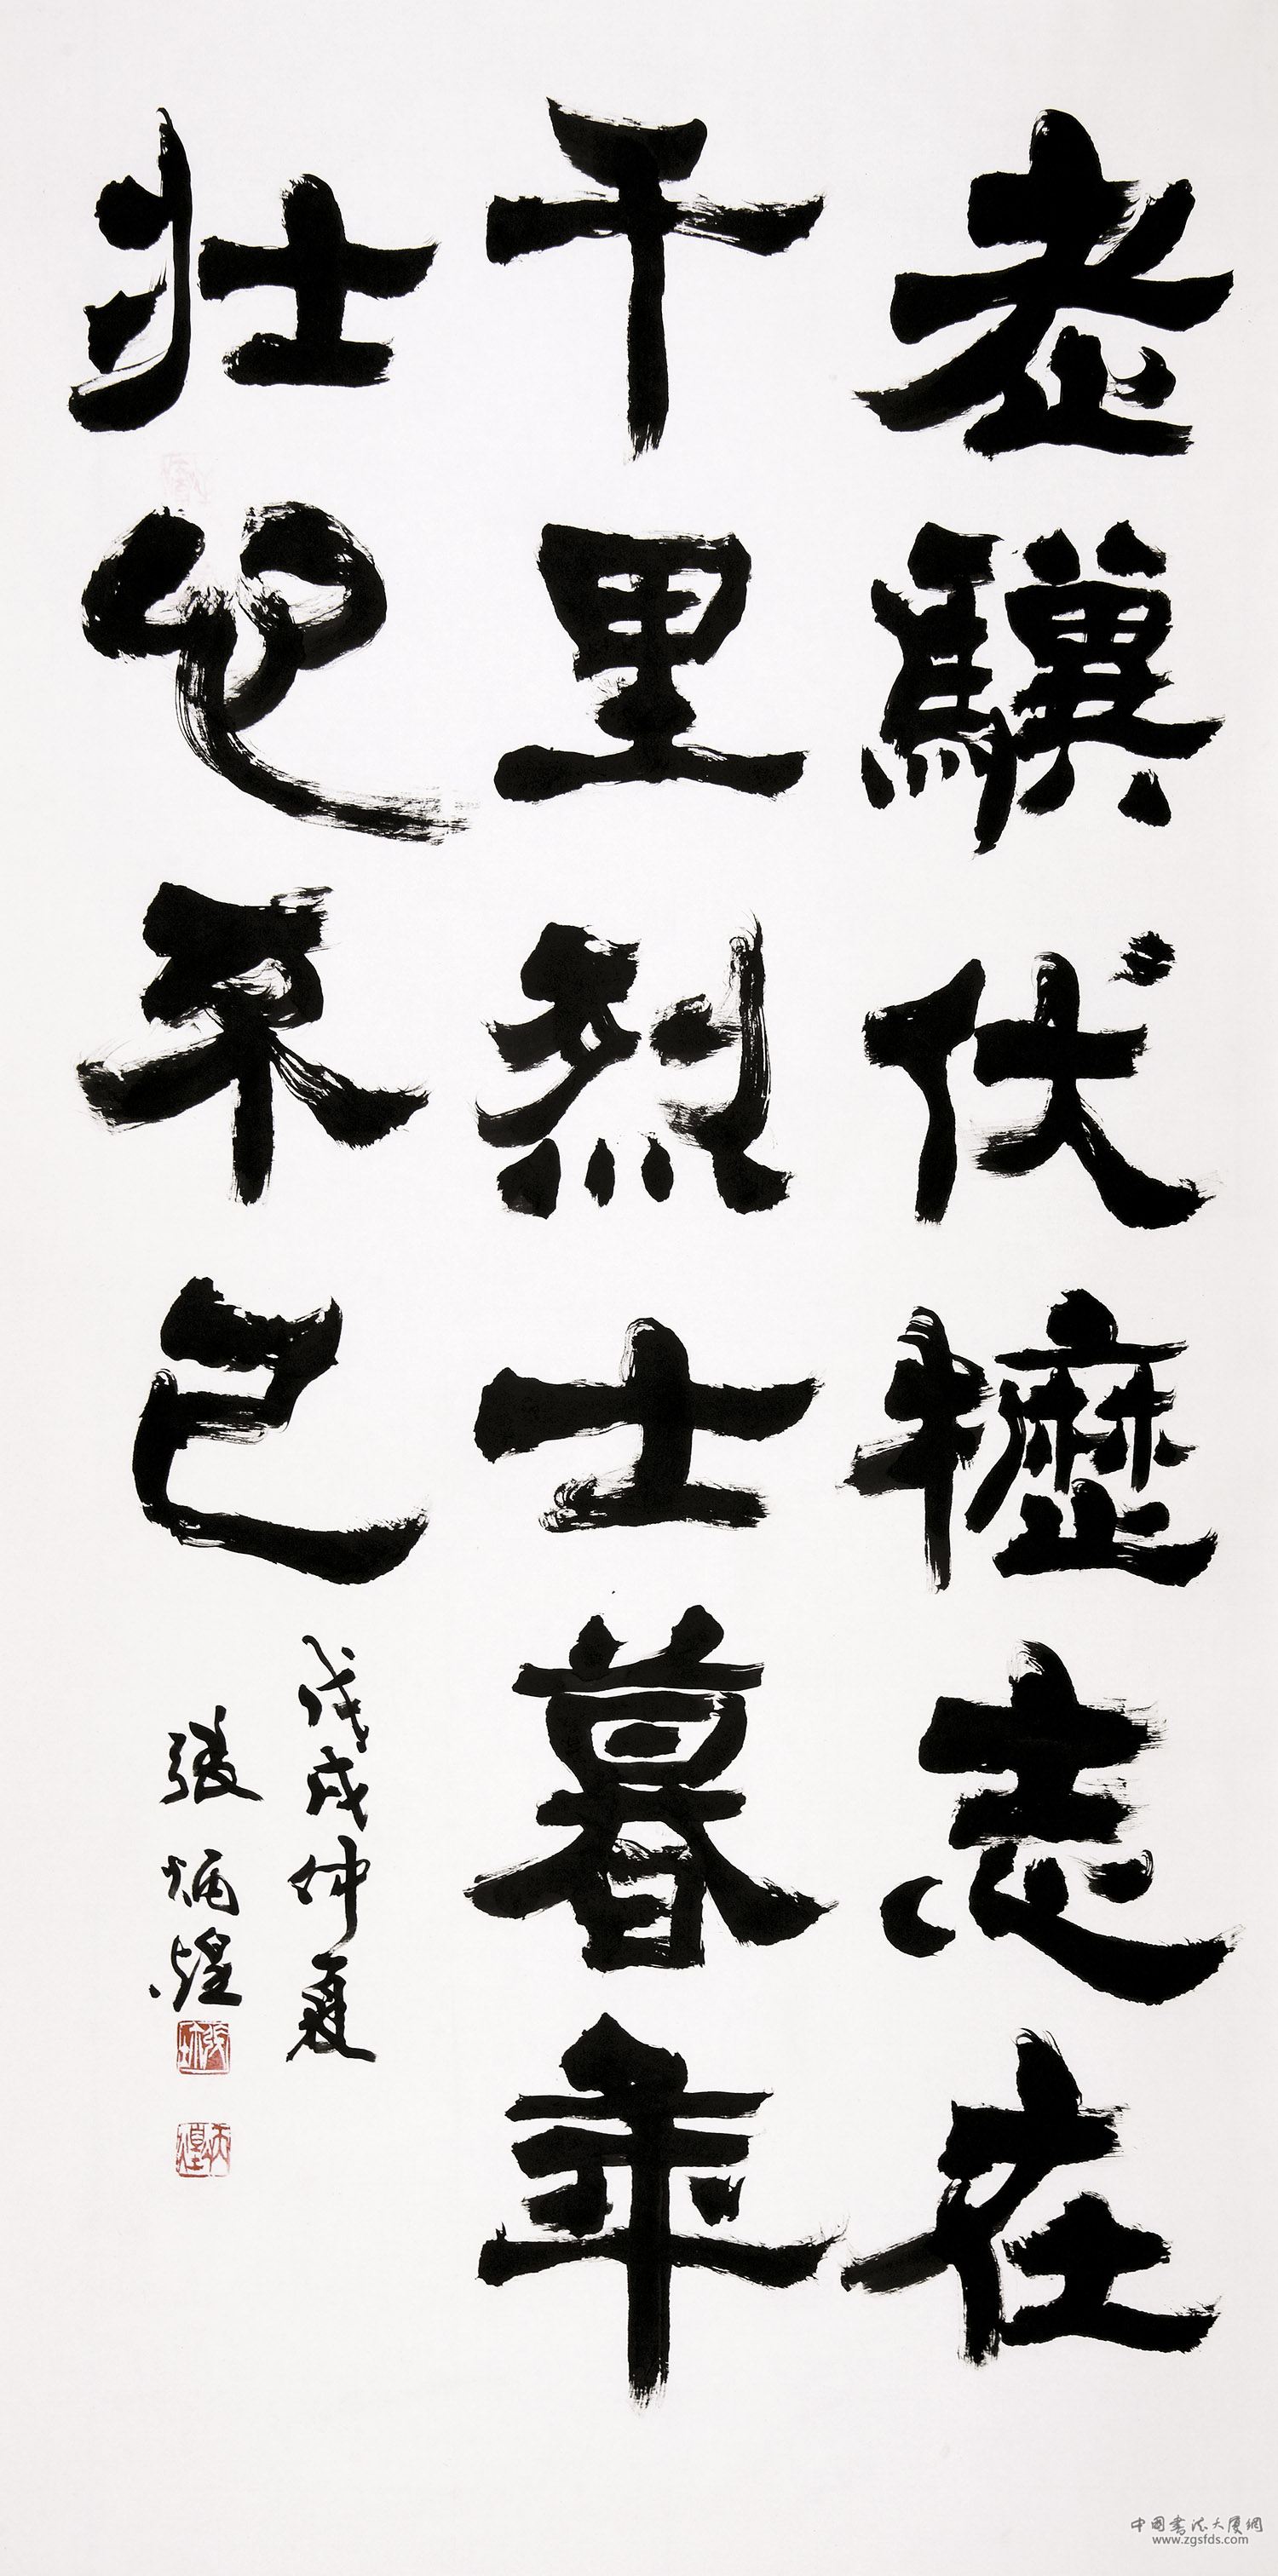 老骥伏櫪志在
千里烈士暮年
壮心不已
戊戌仲夏
張炳煌
中国书法大厦網
www.zgsfds.com